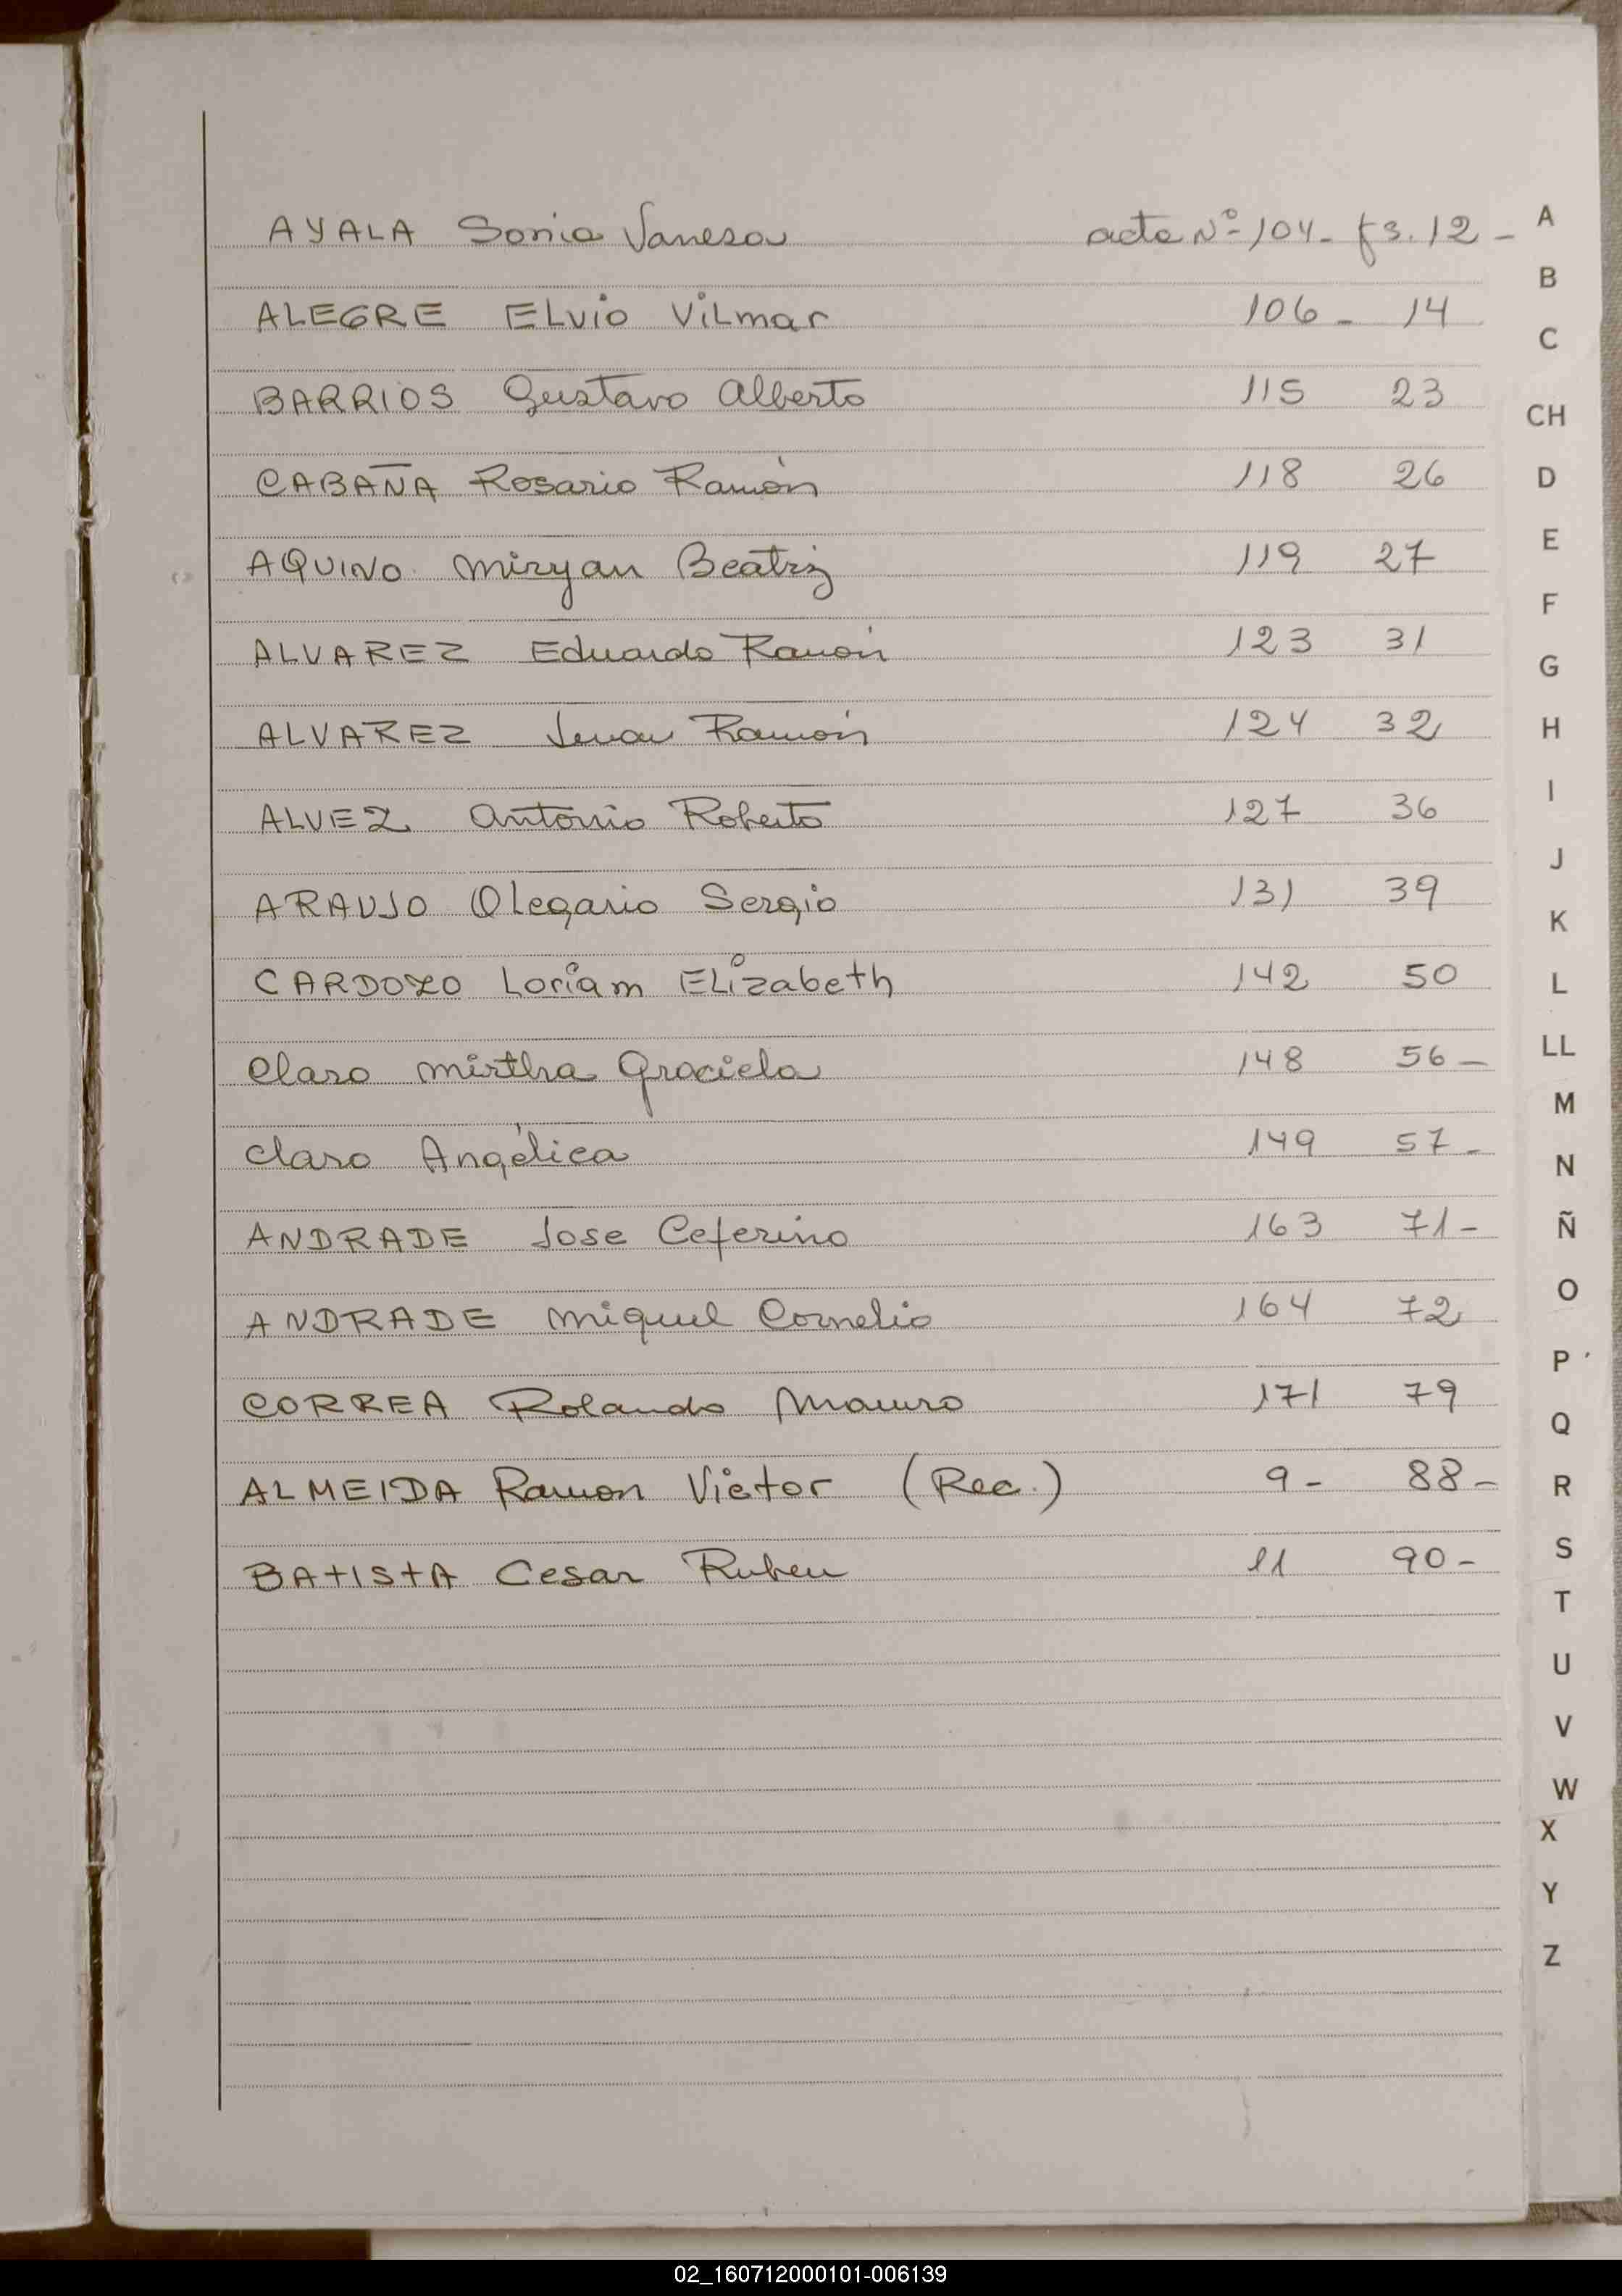 AYALA Sonia Vanesa acta Nº 104 - fs. 12 -
ALEGRE ELvio ViLmar 106 - 14
BARRIOS Gustavo Alberto 115 23
CABAÑA Rosario Ramón 118 26
AQUINO Miryan Beatriz 119 27
ALVAREZ Eduardo Ramón 123 31
ALVAREZ Juan Ramón 124 32
ALVEZ Antonio Roberto 127 36
ARAUJO Olegario Sergio 131 39
CARDOZO Loriam ELizabeth 142 50
Claro Mirtha Graciela 148 56 -
Claro Angélica 149 57 -
ANDRADE Jose Ceferino 163 71 -
ANDRADE Miguel Cornelio 164 72
CORREA Rolando Mauro 171 79
ALMEIDA Ramon Victor (Rec.) 9 - 88 -
BATISTA Cesar Ruben 11 90 -
A
B
C
CH
D
E
F
G
H
I
J
K
L
LL
M
N
Ñ
O
P
Q
R
S
T
U
V
W
X
Y
Z
02_160712000101-006139